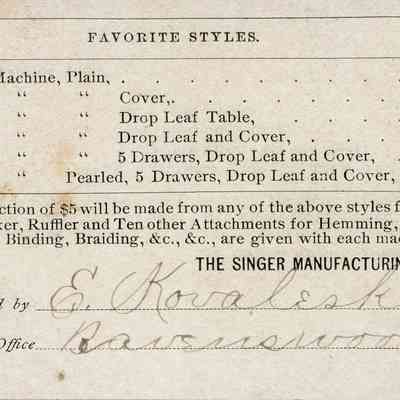 FAVORITE STYLES.
Machine, Plain, . . . . . . . .
“ “ Cover, . . . . . .
“ “ Drop Leaf Table, . . . .
“ “ Drop Leaf and Cover, . . .
“ “ 5 Drawers, Drop Leaf and Cover, .
“ Pearled, 5 Drawers, Drop Leaf and Cover,
ction of $5 will be made from any of the above styles f
ker, Ruffler and Ten other Attachments for Hemming,
Binding, Braiding, &c., &c., are given with each mac
THE SINGER MANUFACTURIN
d by E. Kovalesk
Office Ravenswoo